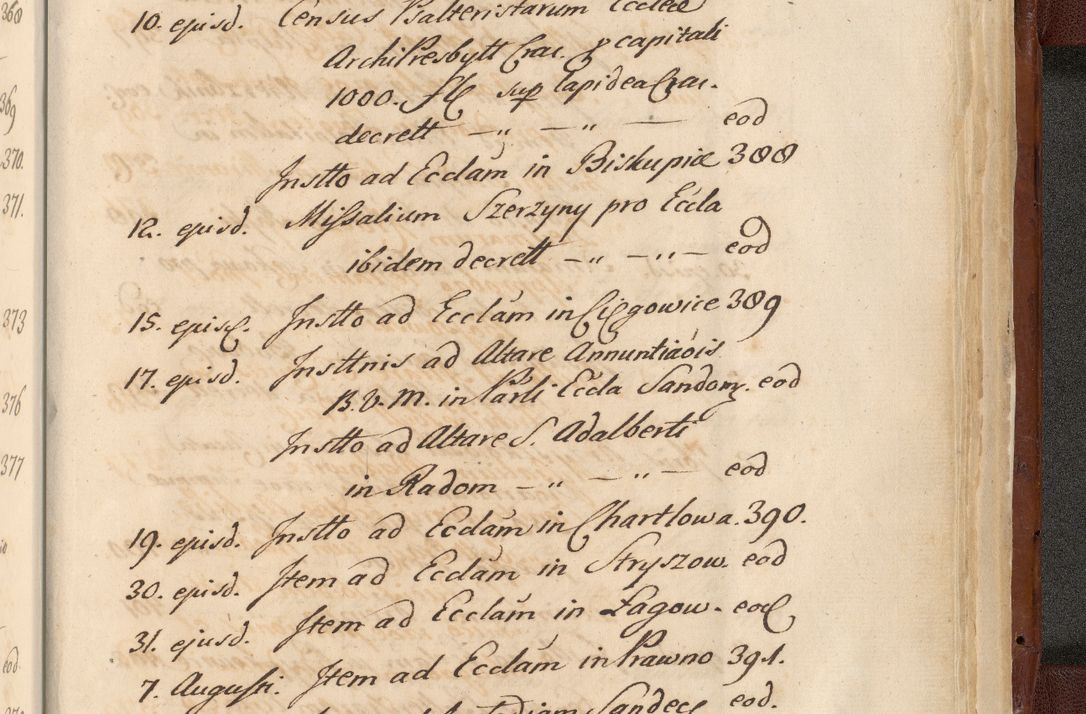 10. episd. Census Psalteristarum Eccleae
ArchiPresbytt Crac. p capitali
1000. Fl sup lapidea Crac.
decrett — „ — „ — eod
Instto ad Ecclam in Biskupice 388
12. episd. Missalium Szerzyny pro Eccla
ibidem decrett — „ — „ — eod
15. episd. Instto ad Ecclam in Cięgowice 389
17. episd. Insttnis ad Altare Annuntiaōis
B. V. M. in Parli Eccla Sandom. eod
Instto ad Altare S. Adalberti
in Radom — „ — „ — eod
19. episd. Instto ad Ecclam in Chartlowa. 390.
30. episd. Item ad Ecclam in Stryszow. eod
31. ejusd. Item ad Ecclam in Łagow. eod
7. Augusti. Item ad Ecclam in Prawno 391.
Sandec eod.
360
369
370.
371.
373
376
377
eod.